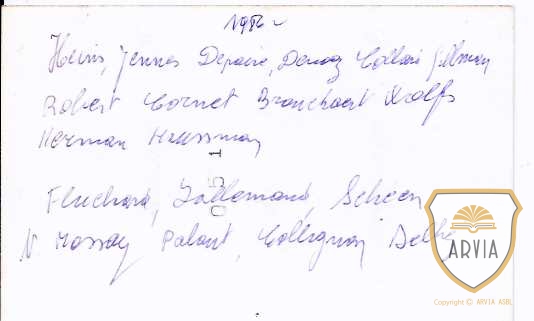 1956
Heins, Jennes Depaire, Collari Gillman
Robert Cornet Branchaert Wolfs
Herman Haussman
051
Fluchard, Lallemand, Scheen
N Mossay Palant, Collignon
ARVIA
Copyright © ARVIA ASBL